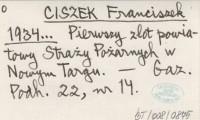 CISZEK Franciszek
1934... Pierwszy zlot powia-
towy Straży Pożarnych w
Nowym Targu. — Gaz.
Podh. 22, nr 14.